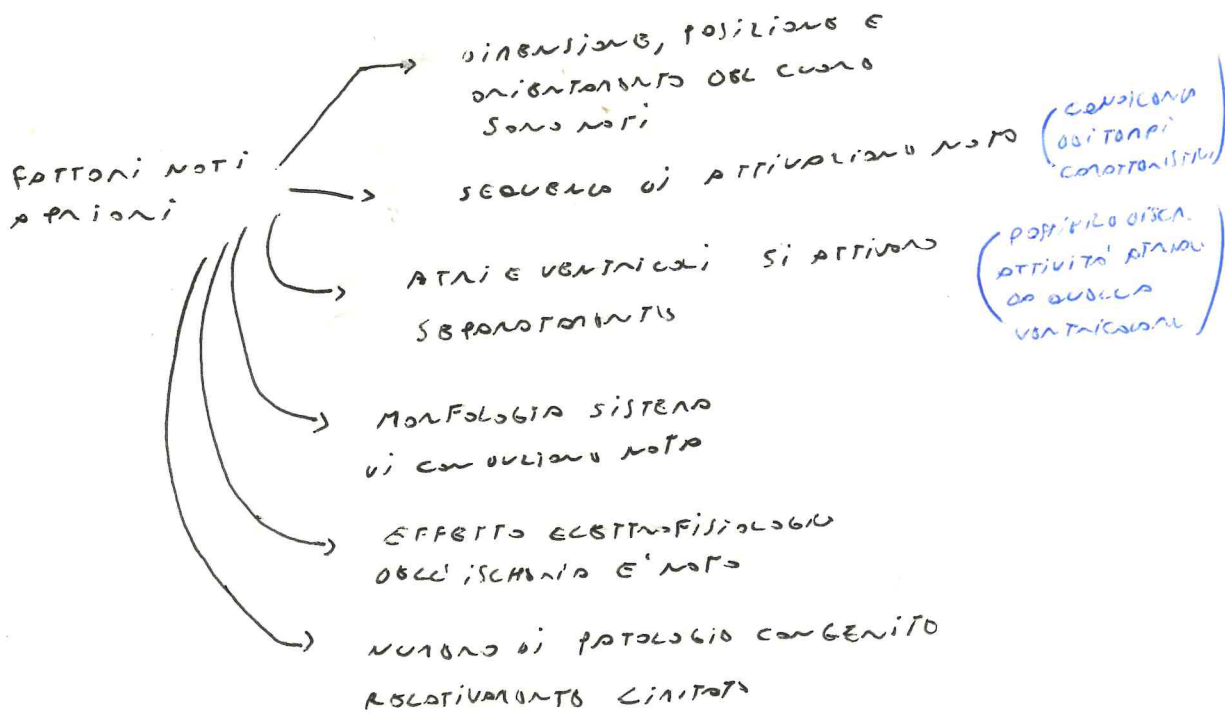 FATTORI NOTI
A PRIORI
DIMENSIONE, POSIZIONE E
ORIENTAMENTO DEL CUORE
SONO NOTI
SEQUENZA DI ATTIVAZIONE NOTA
(CONDIZIONA
DEI TEMPI
CARATTERISTICI)
ATRI E VENTRICOLI SI ATTIVANO
SEPARATAMENTE
(POSSIBILE DISCR.
ATTIVITÀ ATRIALE
DA QUELLA
VENTRICOLARE)
MORFOLOGIA SISTEMA
DI CONDUZIONE NOTA
EFFETTO ELETTROFISIOLOGICO
DELL'ISCHEMIA E' NOTO
NUMERO DI PATOLOGIE CONGENITE
RELATIVAMENTE LIMITATO